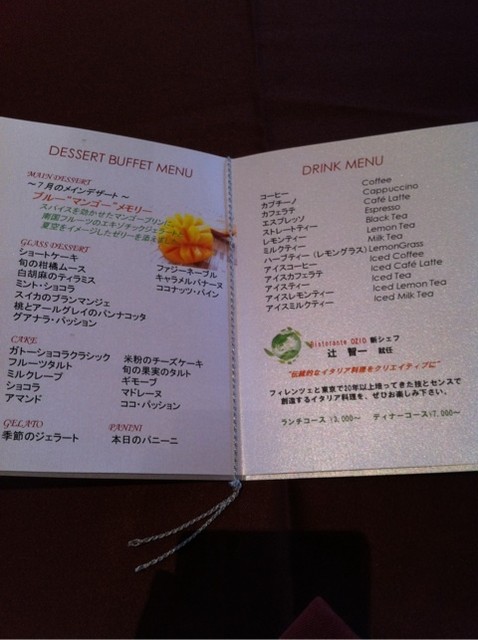 DESSERT BUFFET MENU
MAIN DESSERT
～7月のメインデザート～
ブルー“マンゴー”メモリー
スパイスを効かせたマンゴープリン
南国フルーツのエキゾチックジュエリー
夏空をイメージしたゼリーを添えました
GLASS DESSERT
ショートケーキ
旬の柑橘ムース
白胡麻のティラミス
ミント・ショコラ
スイカのブランマンジェ
桃とアールグレイのパンナコッタ
グアナラ・パッション
ファジーネーブル
キャラメルバナーヌ
ココナッツ・パイン
CAKE
ガトーショコラクラシック
フルーツタルト
ミルクレープ
ショコラ
アマンド
米粉のチーズケーキ
旬の果実のタルト
ギモーブ
マドレーヌ
ココ・パッション
GELATO
季節のジェラート
PANINI
本日のパニーニ
DRINK MENU
コーヒー Coffee
カプチーノ Cappuccino
カフェラテ Café Latte
エスプレッソ Espresso
ストレートティー Black Tea
レモンティー Lemon Tea
ミルクティー Milk Tea
ハーブティー（レモングラス） LemonGrass
アイスコーヒー Iced Coffee
アイスカフェラテ Iced Café Latte
アイスティー Iced Tea
アイスレモンティー Iced Lemon Tea
アイスミルクティー Iced Milk Tea
Ristorante OZIO 新シェフ
辻 智一 就任
“伝統的なイタリア料理をクリエイティブに”
フィレンツェと東京で20年以上培ってきた技とセンスで
創造するイタリア料理を、ぜひお楽しみ下さい。
ランチコース ¥3,000～ ディナーコース¥7,000～